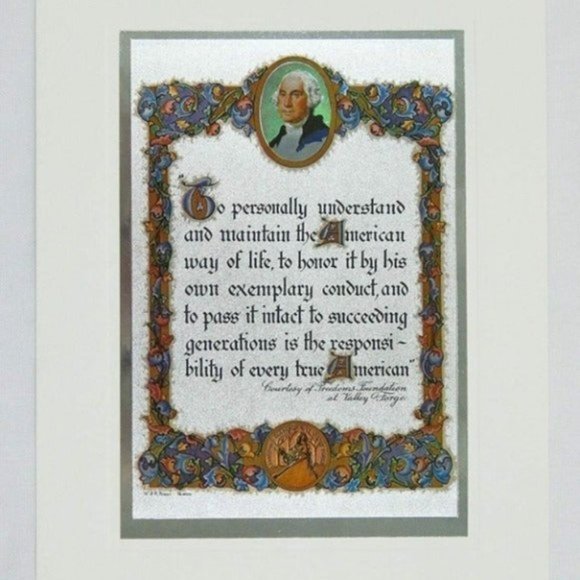 "To personally understand
and maintain the American
way of life, to honor it by his
own exemplary conduct, and
to pass it intact to succeeding
generations is the responsi-
bility of every true American"
Courtesy of Freedoms Foundation
at Valley Forge.